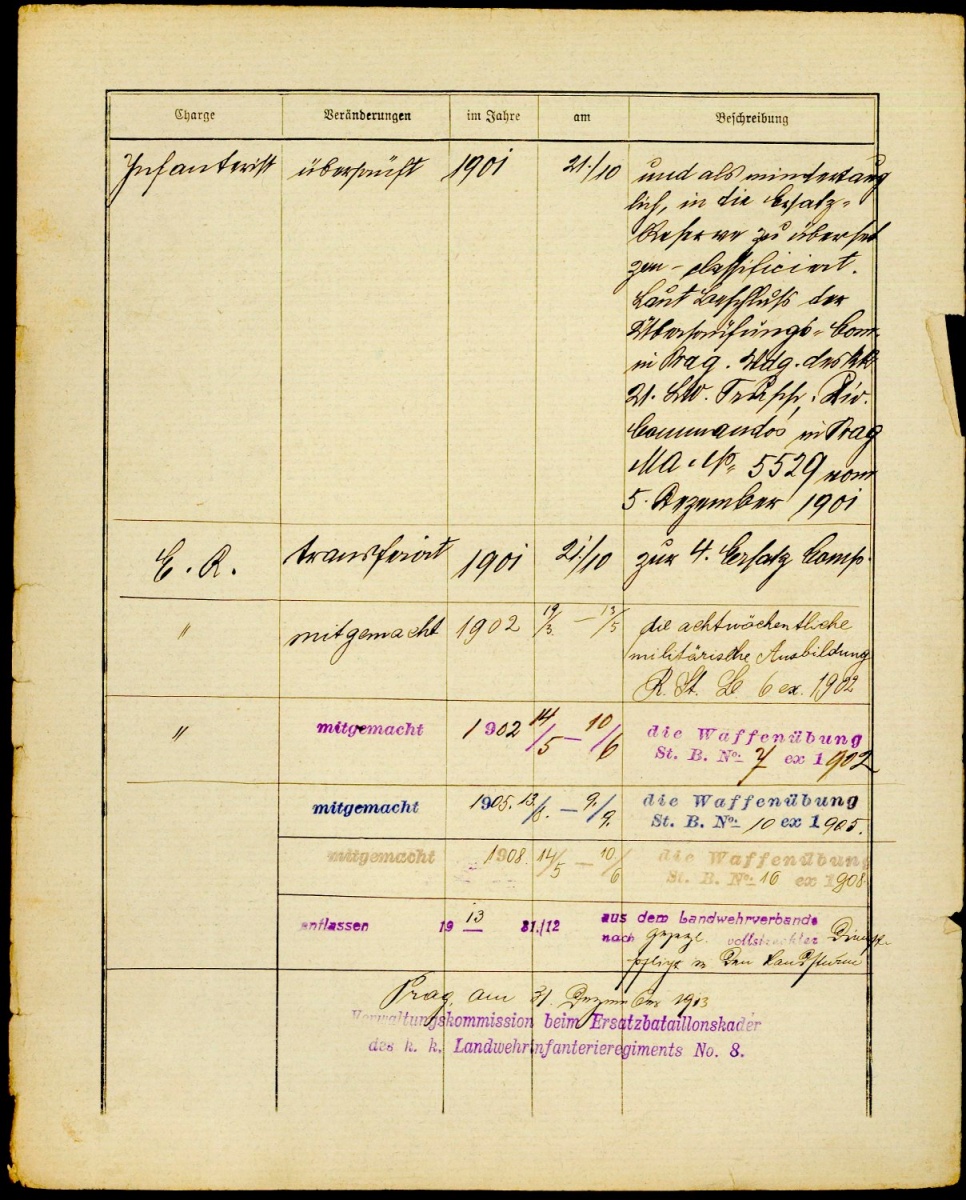 Charge Veränderungen im Jahre am Beschreibung
Infanterist überprüft 1901 21./10 und als mindertaug
lich, in die Ersatz-
Reserve zu überset
zen - classificiert.
Laut Beschluß der
Überprüfungs-Com.
in Prag. Vdg. des kk
21. LW. Trupp. Div.
Commandos in Prag
MA. No. 5529 vom
5. Dezember 1901
E. R. transferirt 1901 21./10 zur 4. Ersatz Comp.
" mitgemacht 1902 19/3. — 13/5 die achtwöchentliche
militärische Ausbildung
R. St. B 6 ex. 1902
" mitgemacht 1902 14/5 — 10/6 die Waffenübung
St. B. No: 7 ex 1902
mitgemacht 1905. 13./8. — 9./9. die Waffenübung
St. B. No: 10 ex 1905.
mitgemacht 1908. 14/5 — 10/6 die Waffenübung
St. B. No: 16 ex 1908
entlassen 1913 31./12 aus dem Landwehrverbande
nach gesezl. vollstreckter Dienst-
pflicht in den Landsturm
Prag, am 31. Dezember 1913
Verwaltungskommission beim Ersatzbataillonskader
des k. k. Landwehrinfanterieregiments No. 8.